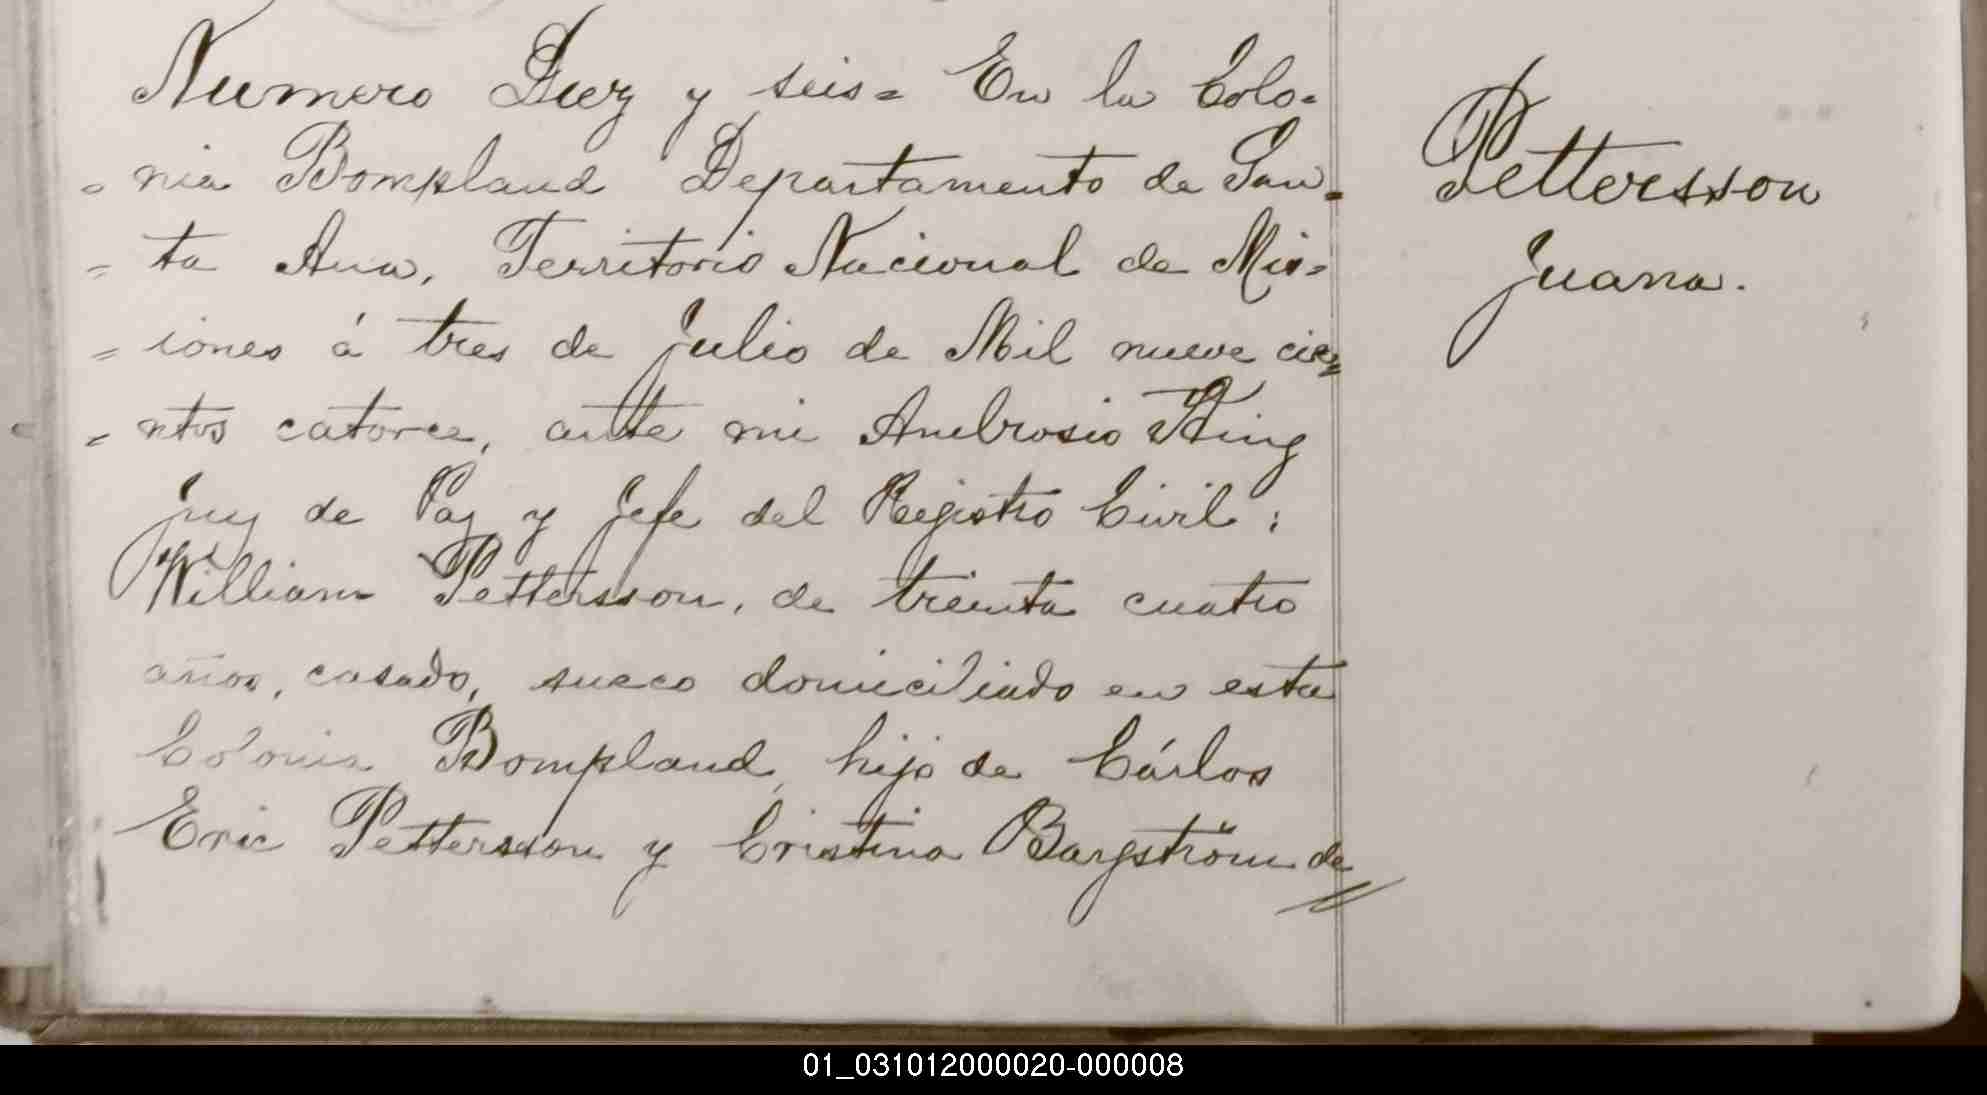 Numero Diez y seis= En la Colo=
= nia Bompland Departamento de San=
= ta Ana, Territorio Nacional de Mis=
= iones á tres de Julio de Mil nueve cie=
= ntos catorce, ante mi Ambrosio King
Juez de Paz y Jefe del Registro Civil:
William Pettersson, de treinta cuatro
años, casado, sueco domiciliado en esta
Colonia Bompland, hijo de Cárlos
Eric Pettersson y Cristina Bargström de
Pettersson
Juana.
01_031012000020-000008